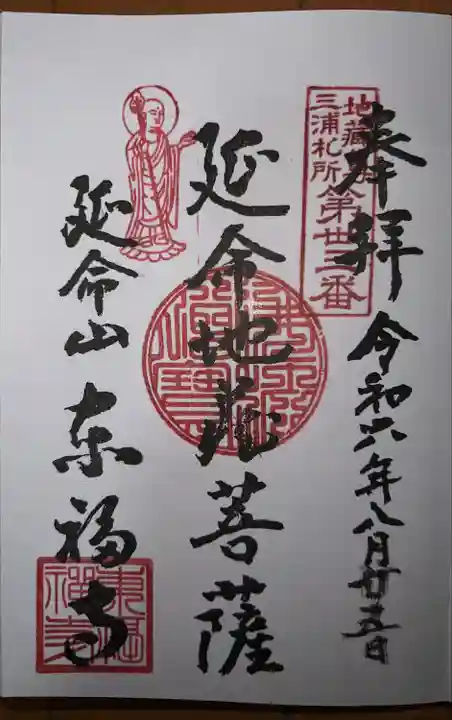 奉拝 令和六年八月廿五日
三浦札所第卅三番
延命地蔵菩薩
延命山 東福寺
東福禅寺